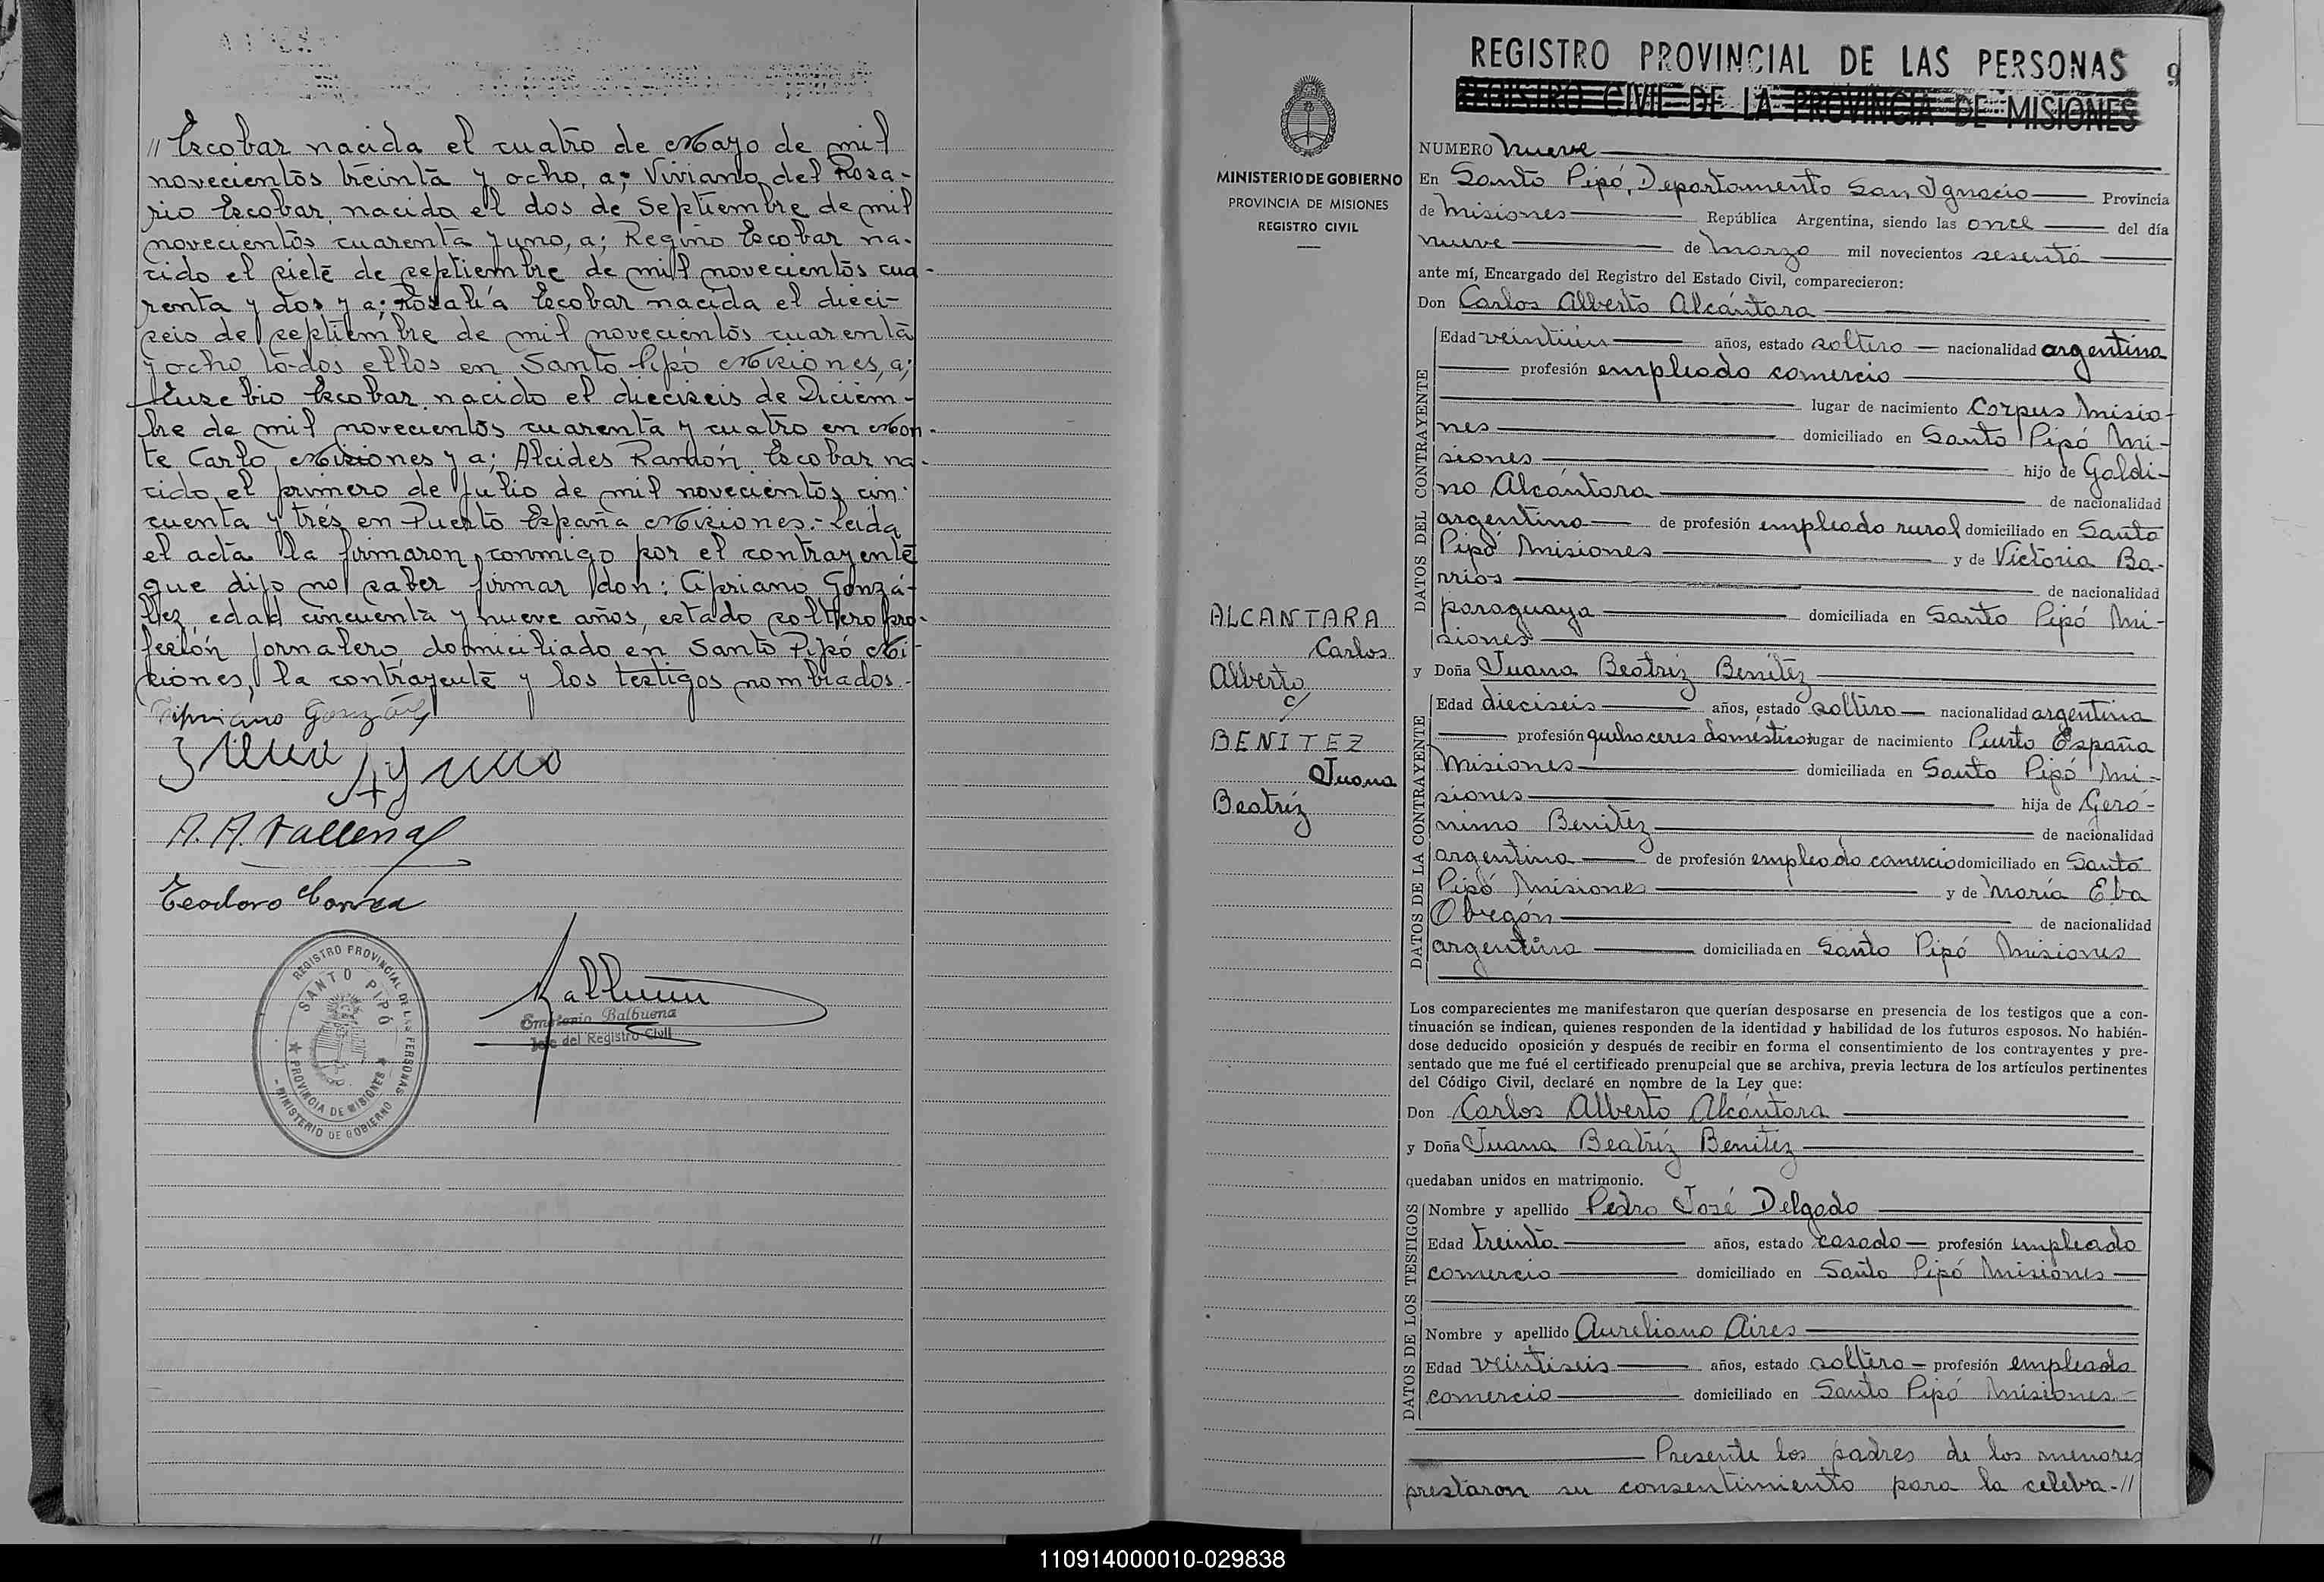 // Escobar nacida el cuatro de Mayo de mil
novecientos treinta y ocho, a; Viviana del Rosa-
rio Escobar, nacida el dos de Septiembre de mil
novecientos cuarenta y uno, a; Regino Escobar na-
cido el siete de septiembre de mil novecientos cua-
renta y dos y a; Rosalía Escobar nacida el dieci-
seis de septiembre de mil novecientos cuarenta
y ocho todos ellos en Santo Pipó Misiones, a;
Eusebio Escobar nacido el dieciseis de Diciem-
bre de mil novecientos cuarenta y cuatro en Mon-
te Carlo, Misiones y a; Alcides Ramón Escobar na-
cido el primero de Julio de mil novecientos cin-
cuenta y trés en Puerto España Misiones.- Leida
el acta la firmaron conmigo por el contrayente
que dijo no saber firmar don: Cipriano Gonzá-
lez edad cincuenta y nueve años, estado soltero pro-
fesión jornalero, domiciliado en Santo Pipó Mi-
siones, la contrayente y los testigos nombrados.-
Cipriano González
Teodoro Correa
REGISTRO PROVINCIAL DE LAS PERSONAS
SANTO PIPÓ
PROVINCIA DE MISIONES
MINISTERIO DE GOBIERNO
Balbuena
Jefe del Registro Civil
REGISTRO PROVINCIAL DE LAS PERSONAS 9
REGISTRO CIVIL DE LA PROVINCIA DE MISIONES
MINISTERIO DE GOBIERNO
PROVINCIA DE MISIONES
REGISTRO CIVIL
ALCANTARA
Carlos
Alberto
c/
BENITEZ
Juana
Beatríz
NUMERO nueve
En Santo Pipó, Departamento San Ignacio Provincia
de Misiones República Argentina, siendo las once del día
nueve de marzo mil novecientos sesenta
ante mí, Encargado del Registro del Estado Civil, comparecieron:
Don Carlos Alberto Alcántara
DATOS DEL CONTRAYENTE
Edad veintiún años, estado soltero nacionalidad argentina
profesión empleado comercio
lugar de nacimiento Corpus Misio-
nes domiciliado en Santo Pipó Mi-
siones hijo de Galdi-
no Alcántara de nacionalidad
argentino de profesión empleado rural domiciliado en Santo
Pipó Misiones y de Victoria Ba-
rrios de nacionalidad
paraguaya domiciliada en Santo Pipó Mi-
siones
y Doña Juana Beatríz Benítez
DATOS DE LA CONTRAYENTE
Edad dieciseis años, estado soltera nacionalidad argentina
profesión quehaceres domésticos lugar de nacimiento Puerto España
Misiones domiciliada en Santo Pipó Mi-
siones hija de Geró-
nimo Benítez de nacionalidad
argentina de profesión empleado comercio domiciliado en Santo
Pipó Misiones y de María Eba
Obregón de nacionalidad
argentina domiciliada en Santo Pipó Misiones
Los comparecientes me manifestaron que querían desposarse en presencia de los testigos que a con-
tinuación se indican, quienes responden de la identidad y habilidad de los futuros esposos. No habién-
dose deducido oposición y después de recibir en forma el consentimiento de los contrayentes y pre-
sentado que me fué el certificado prenupcial que se archiva, previa lectura de los artículos pertinentes
del Código Civil, declaré en nombre de la Ley que:
Don Carlos Alberto Alcántara
y Doña Juana Beatríz Benítez
quedaban unidos en matrimonio.
DATOS DE LOS TESTIGOS
Nombre y apellido Pedro José Delgado
Edad treinta años, estado casado profesión empleado
comercio domiciliado en Santo Pipó Misiones
Nombre y apellido Aureliano Aires
Edad veintiseis años, estado soltero profesión empleado
comercio domiciliado en Santo Pipó Misiones
Presente los padres de los menores
prestaron su consentimiento para la celebra-//
110914000010-029838